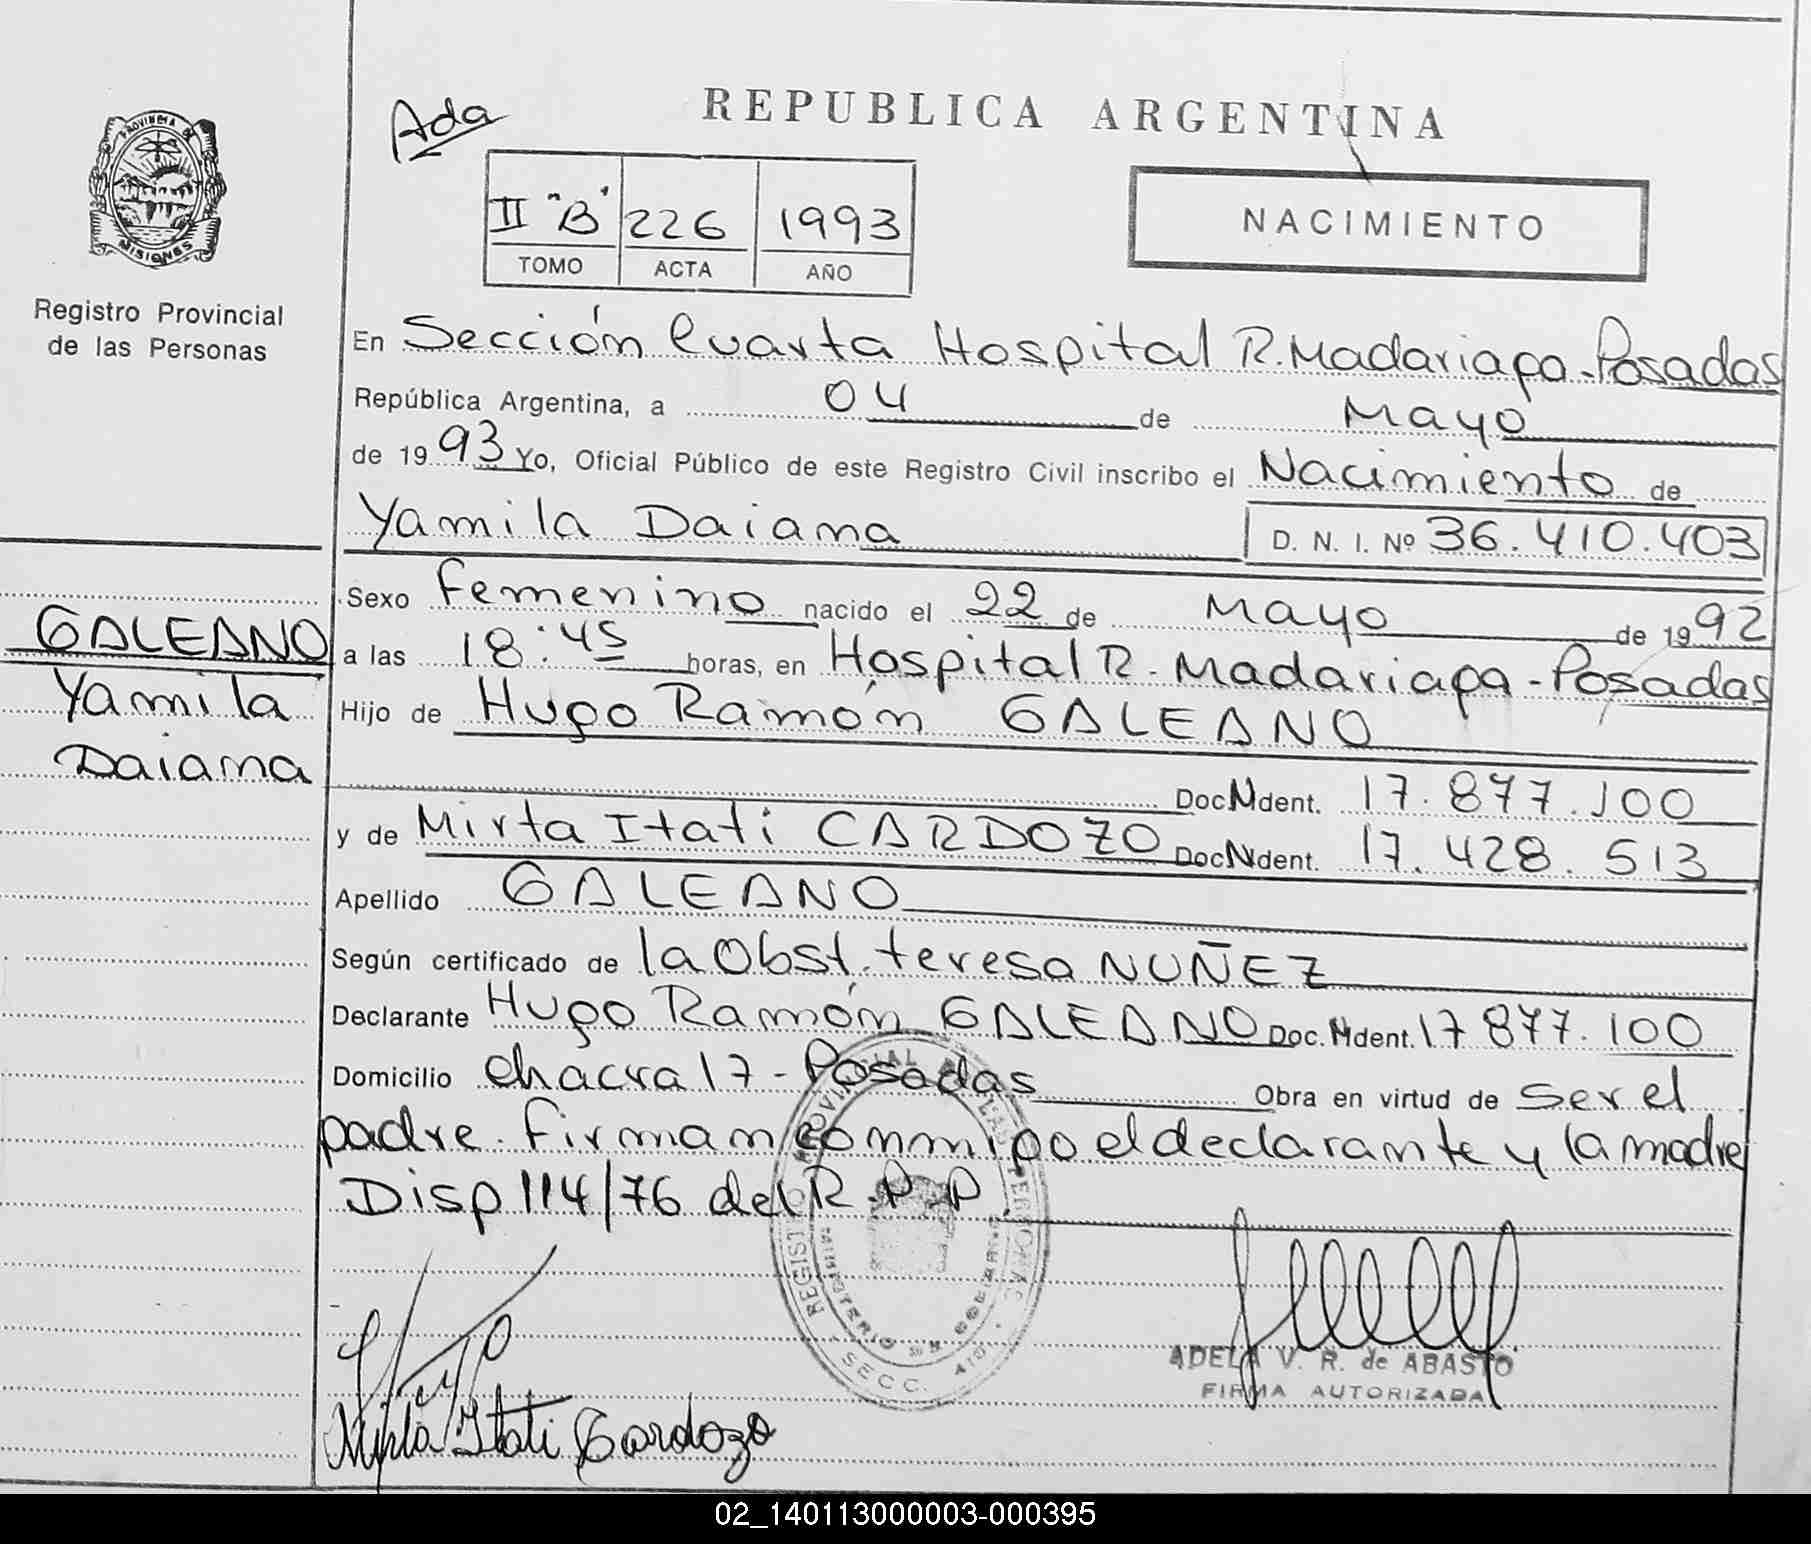 REPUBLICA ARGENTINA
Ada
PROVINCIA DE
MISIONES
Registro Provincial
de las Personas
II "B" 226 1993
TOMO ACTA AÑO
NACIMIENTO
En Sección Cuarta Hospital R. Madariaga - Posadas
República Argentina, a 04 de Mayo
de 1993 Yo, Oficial Público de este Registro Civil inscribo el Nacimiento de
Yamila Daiana D. N. I. Nº 36.410.403
Sexo Femenino nacido el 22 de Mayo de 1992
a las 18:45 horas, en Hospital R. Madariaga - Posadas
GALEANO
Yamila
Daiana
Hijo de Hugo Ramón GALEANO
Doc. N Ident. 17.877.100
y de Mirta Itati CARDOZO Doc. N Ident. 17.428.513
Apellido GALEANO
Según certificado de la Obst. Teresa NUÑEZ
Declarante Hugo Ramón GALEANO Doc. N Ident. 17 877.100
Domicilio Chacra 17 - Posadas Obra en virtud de Ser el
padre. Firman conmigo el declarante y la madre
Disp 114/76 del R.P.P.
REGISTRO PROVINCIAL DE LAS PERSONAS
MINISTERIO DE GOBIERNO
SECC. 4
ADELA V. R. de ABASTO
FIRMA AUTORIZADA
Mirta Itati Cardozo
02_140113000003-000395